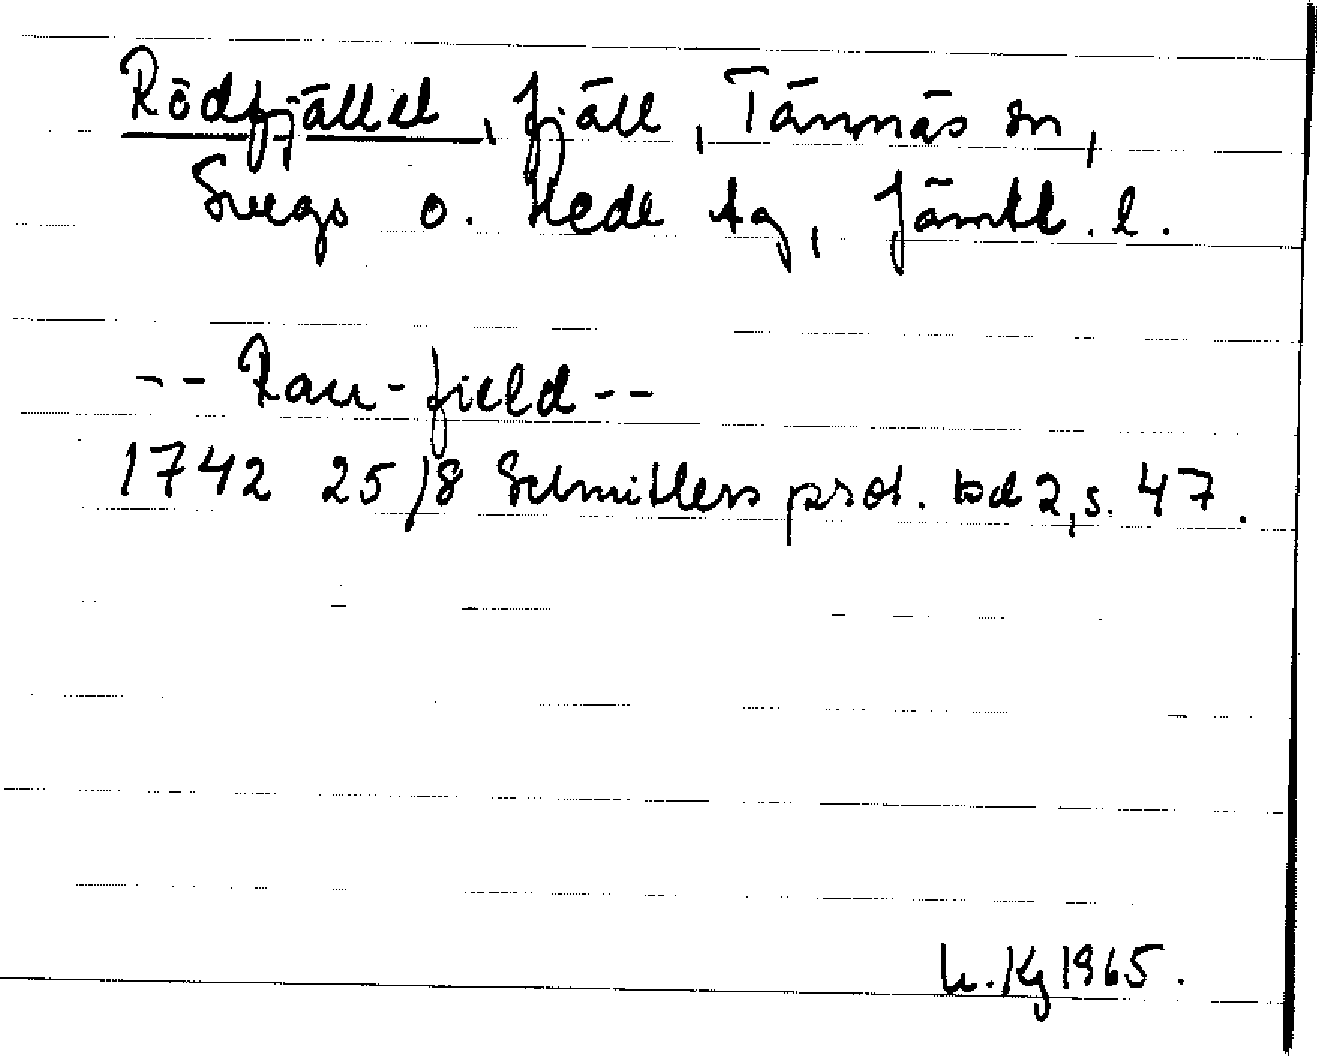 Rödfjället, fjäll, Tännäs sn,
Svegs o. Hede tg, Jämtl. l.
-- Rau-field --
1742 25/8 Schnitlers prot. bd 2, s. 47.
h. Kg 1965.